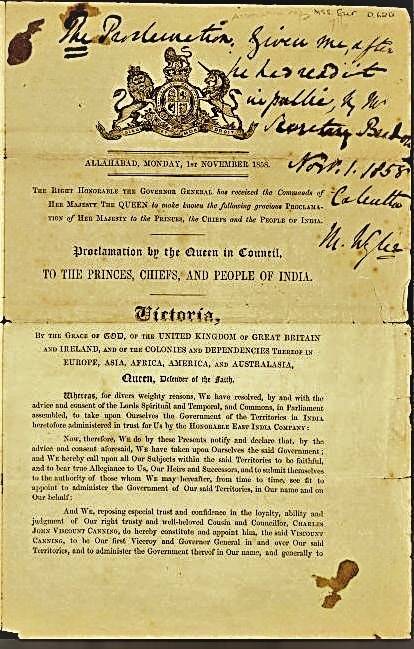 The Proclamation, given me, after
he had read it
in public, by Mr
Secretary Beadon
Novr. 1. 1858
Calcutta
M. Wylie
ALLAHABAD, MONDAY, 1ST NOVEMBER 1858.
THE RIGHT HONORABLE THE GOVERNOR GENERAL has received the Commands of
HER MAJESTY THE QUEEN to make known the following gracious PROCLAMA-
TION of HER MAJESTY to the PRINCES, the CHIEFS and the PEOPLE OF INDIA.
Proclamation by the Queen in Council,
TO THE PRINCES, CHIEFS, AND PEOPLE OF INDIA.
Victoria,
BY THE GRACE OF GOD, OF THE UNITED KINGDOM OF GREAT BRITAIN
AND IRELAND, AND OF THE COLONIES AND DEPENDENCIES THEREOF IN
EUROPE, ASIA, AFRICA, AMERICA, AND AUSTRALASIA,
Queen, Defender of the Faith.
Whereas, for divers weighty reasons, WE have resolved, by and with the
advice and consent of the Lords Spiritual and Temporal, and Commons, in Parliament
assembled, to take upon Ourselves the Government of the Territories in INDIA
heretofore administered in trust for Us by the HONORABLE EAST INDIA COMPANY:
Now, therefore, WE do by these Presents notify and declare that, by the
advice and consent aforesaid, WE have taken upon Ourselves the said Government;
and WE hereby call upon all Our Subjects within the said Territories to be faithful,
and to bear true Allegiance to Us, Our Heirs and Successors, and to submit themselves
to the authority of those whom WE may hereafter, from time to time, see fit to
appoint to administer the Government of Our said Territories, in Our name and on
Our behalf:
And WE, reposing especial trust and confidence in the loyalty, ability and
judgment of Our right trusty and well-beloved Cousin and Councillor, CHARLES
JOHN VISCOUNT CANNING, do hereby constitute and appoint him, the said VISCOUNT
CANNING, to be Our first Viceroy and Governor General in and over Our said
Territories, and to administer the Government thereof in Our name, and generally to